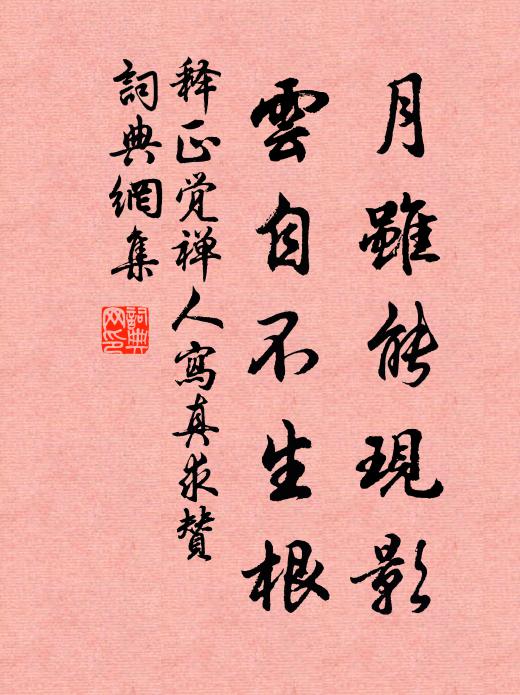 月雖能現影
雲自不生根
释正覚禅人寫真求贊
詞典網集
詞典
网印